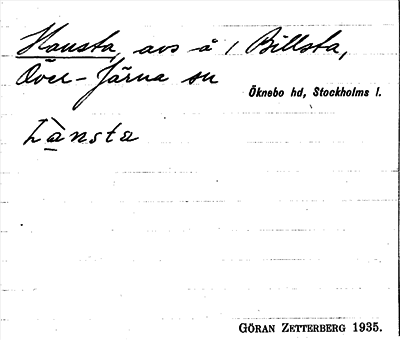 Hansta, avs å / Billsta,
Över-Järna sn
Öknebo hd, Stockholms l.
hànsta
GÖRAN ZETTERBERG 1935.